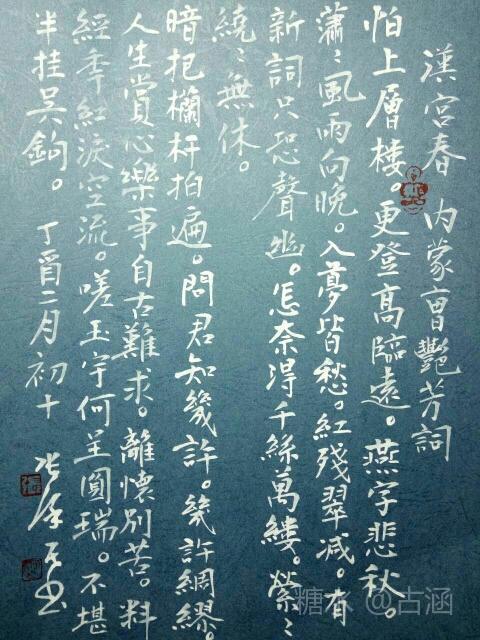 漢宮春 內蒙曹艷芳詞
怕上層樓。更登高臨遠。燕字悲秋。
蕭〻風雨向晚。入夢皆愁。紅殘翠減。有
新詞只恐聲幽。怎奈得千絲萬縷。縈〻
繞〻無休。
暗把欄杆拍遍。問君知幾許。幾許綢繆。
人生賞心樂事自古難求。離懷別苦。料
經年紅淚空流。嗟玉宇何呈圓瑞。不堪
半挂吴鉤。 丁酉二月初十
糖水 @古涵